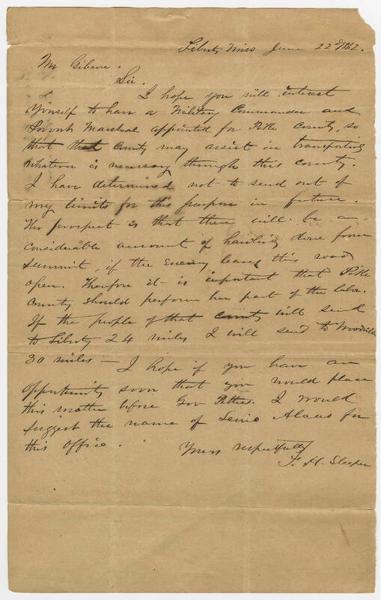 Liberty Miss June 22nd 1862.
Mr
Sir.
I hope you will interest
Yourself to have a Military Commander and
Provost Marshal appointed for Pike County, so
that that County may assist in transporting
whatever is necessary through this county.
I have determined not to send out of
my limits for this purpose in future.
The prospect is that there will be a
considerable amount of hauling done from
Summit, if the enemy leaves this road
open. Therefore it is important that Pike
County should perform her part of the labor.
If the people of that county will send
to Liberty 24 miles I will send to Woodville
30 miles — I hope if you have an
opportunity soon that you would place
this matter before Gov Pettus. I would
suggest the name of for
this office. Yours respectfully